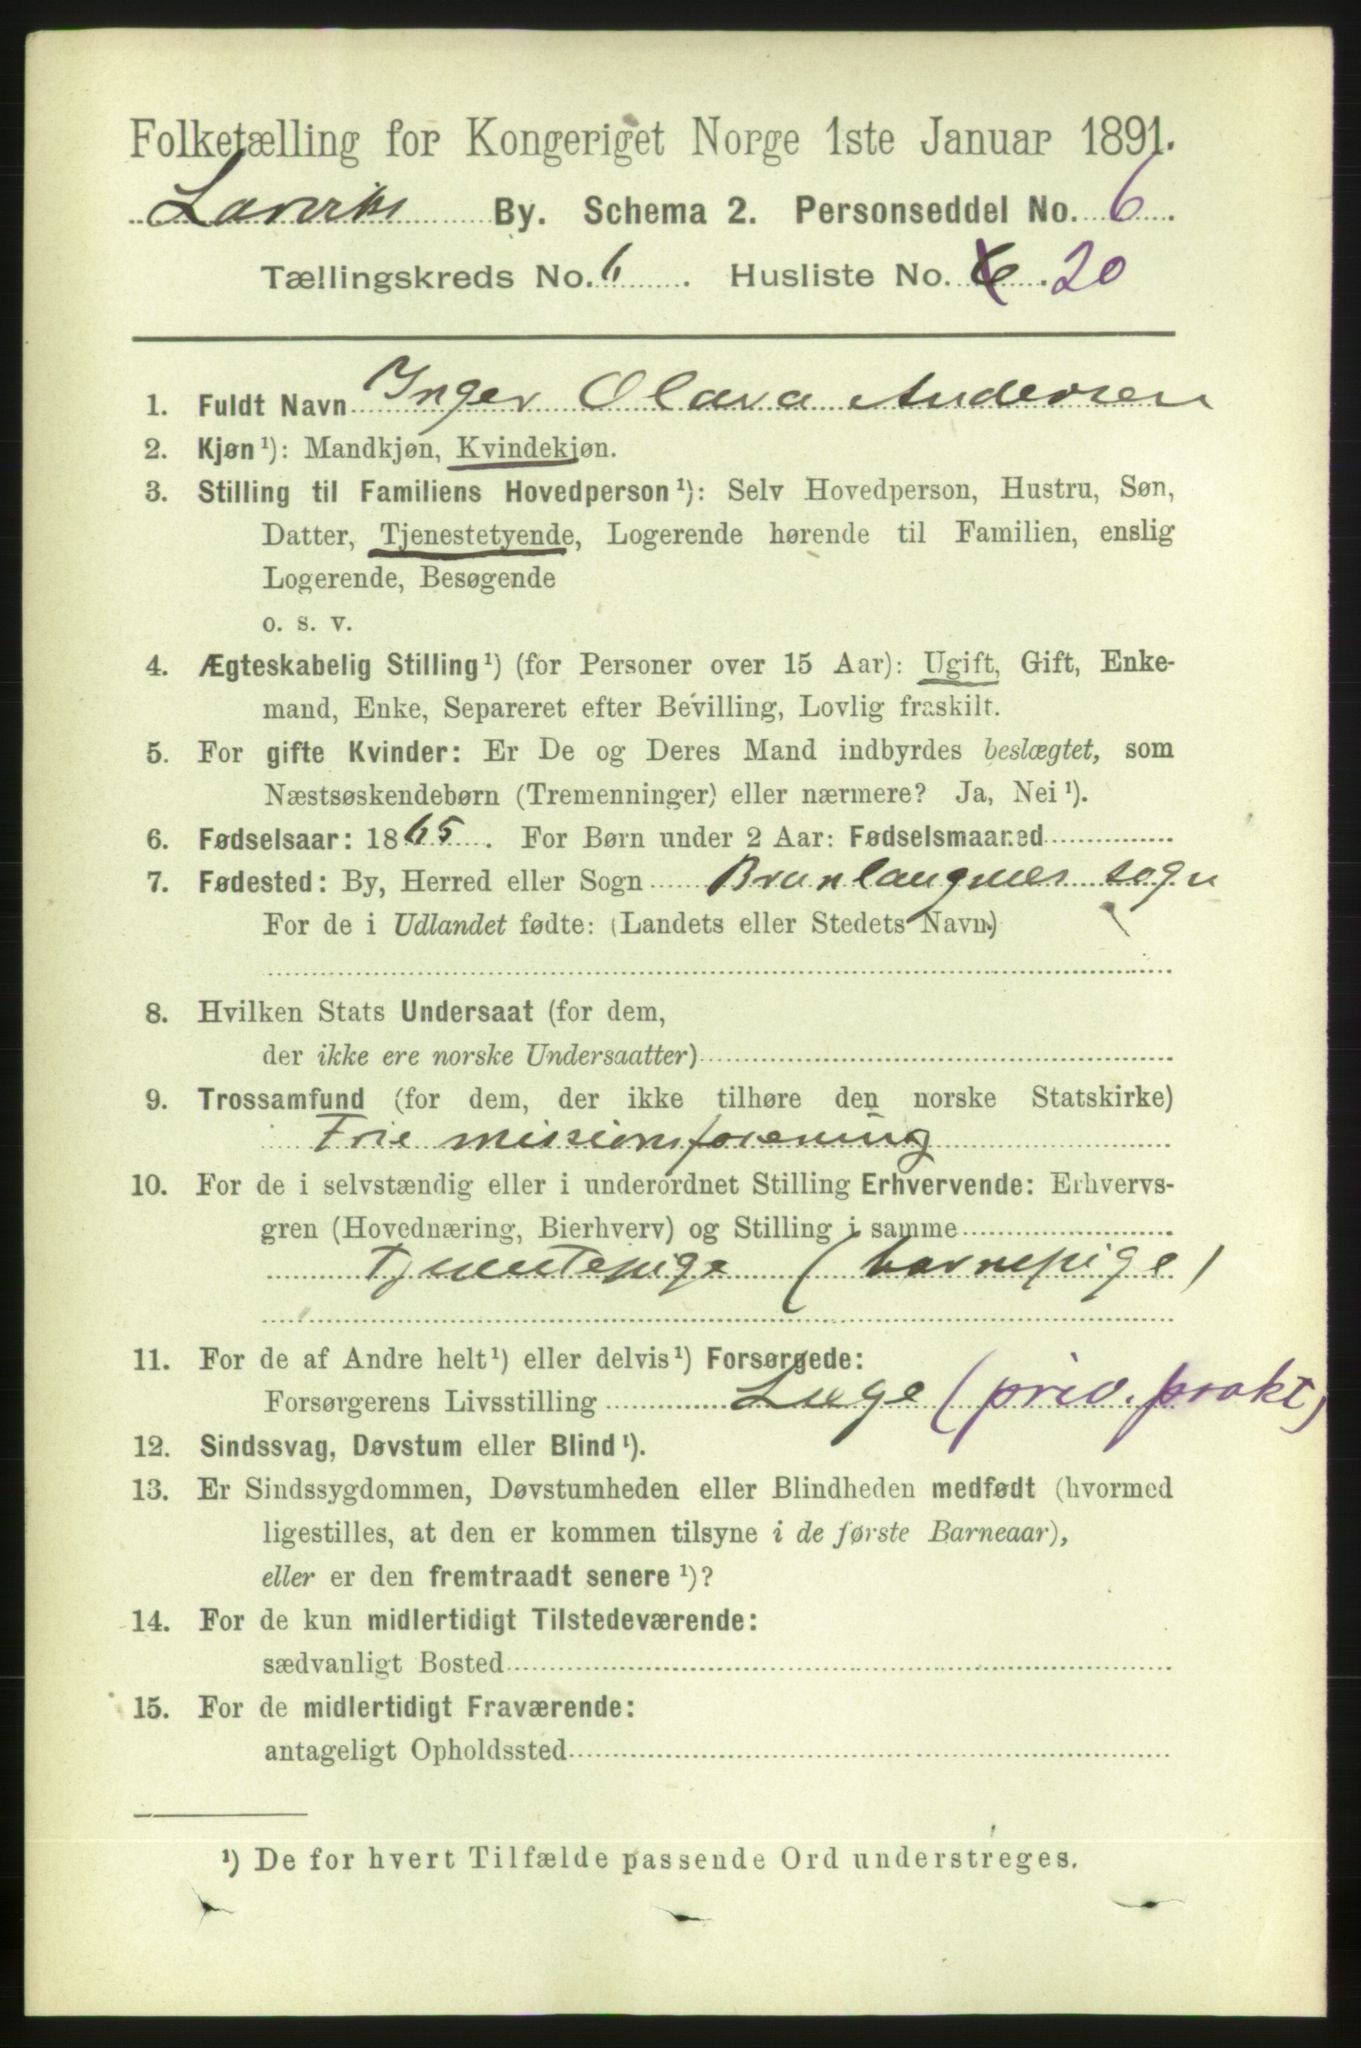 Folketælling for Kongeriget Norge 1ste Januar 1891.
Larviks By. Schema 2. Personseddel No. 6.
Tællingskreds No. 6. Husliste No. 6. 20
1. Fuldt Navn Inger Olava Andersen
2. Kjøn ¹): Mandkjøn, Kvindekjøn.
3. Stilling til Familiens Hovedperson ¹): Selv Hovedperson, Hustru, Søn,
Datter, Tjenestetyende, Logerende hørende til Familien, enslig
Logerende, Besøgende
o. s. v.
4. Ægteskabelig Stilling ¹) (for Personer over 15 Aar): Ugift, Gift, Enke-
mand, Enke, Separeret efter Bevilling, Lovlig fraskilt.
5. For gifte Kvinder: Er De og Deres Mand indbyrdes beslægtet, som
Næstsøskendebørn (Tremenninger) eller nærmere? Ja, Nei ¹).
6. Fødselsaar: 1865. For Børn under 2 Aar: Fødselsmaaned
7. Fødested: By, Herred eller Sogn Brunlaugnes sogn
For de i Udlandet fødte: (Landets eller Stedets Navn)
8. Hvilken Stats Undersaat (for dem,
der ikke ere norske Undersaatter)
9. Trossamfund (for dem, der ikke tilhøre den norske Statskirke)
Frie missionsforening
10. For de i selvstændig eller i underordnet Stilling Erhvervende: Erhvervs-
gren (Hovednæring, Bierhverv) og Stilling i samme
Tjenestepige (barnepige)
11. For de af Andre helt ¹) eller delvis ¹) Forsørgede:
Forsørgerens Livsstilling Læge (priv. prakt)
12. Sindssvag, Døvstum eller Blind ¹).
13. Er Sindssygdommen, Døvstumheden eller Blindheden medfødt (hvormed
ligestilles, at den er kommen tilsyne i de første Barneaar),
eller er den fremtraadt senere ¹)?
14. For de kun midlertidigt Tilstedeværende:
sædvanligt Bosted
15. For de midlertidigt Fraværende:
antageligt Opholdssted
¹) De for hvert Tilfælde passende Ord understreges.